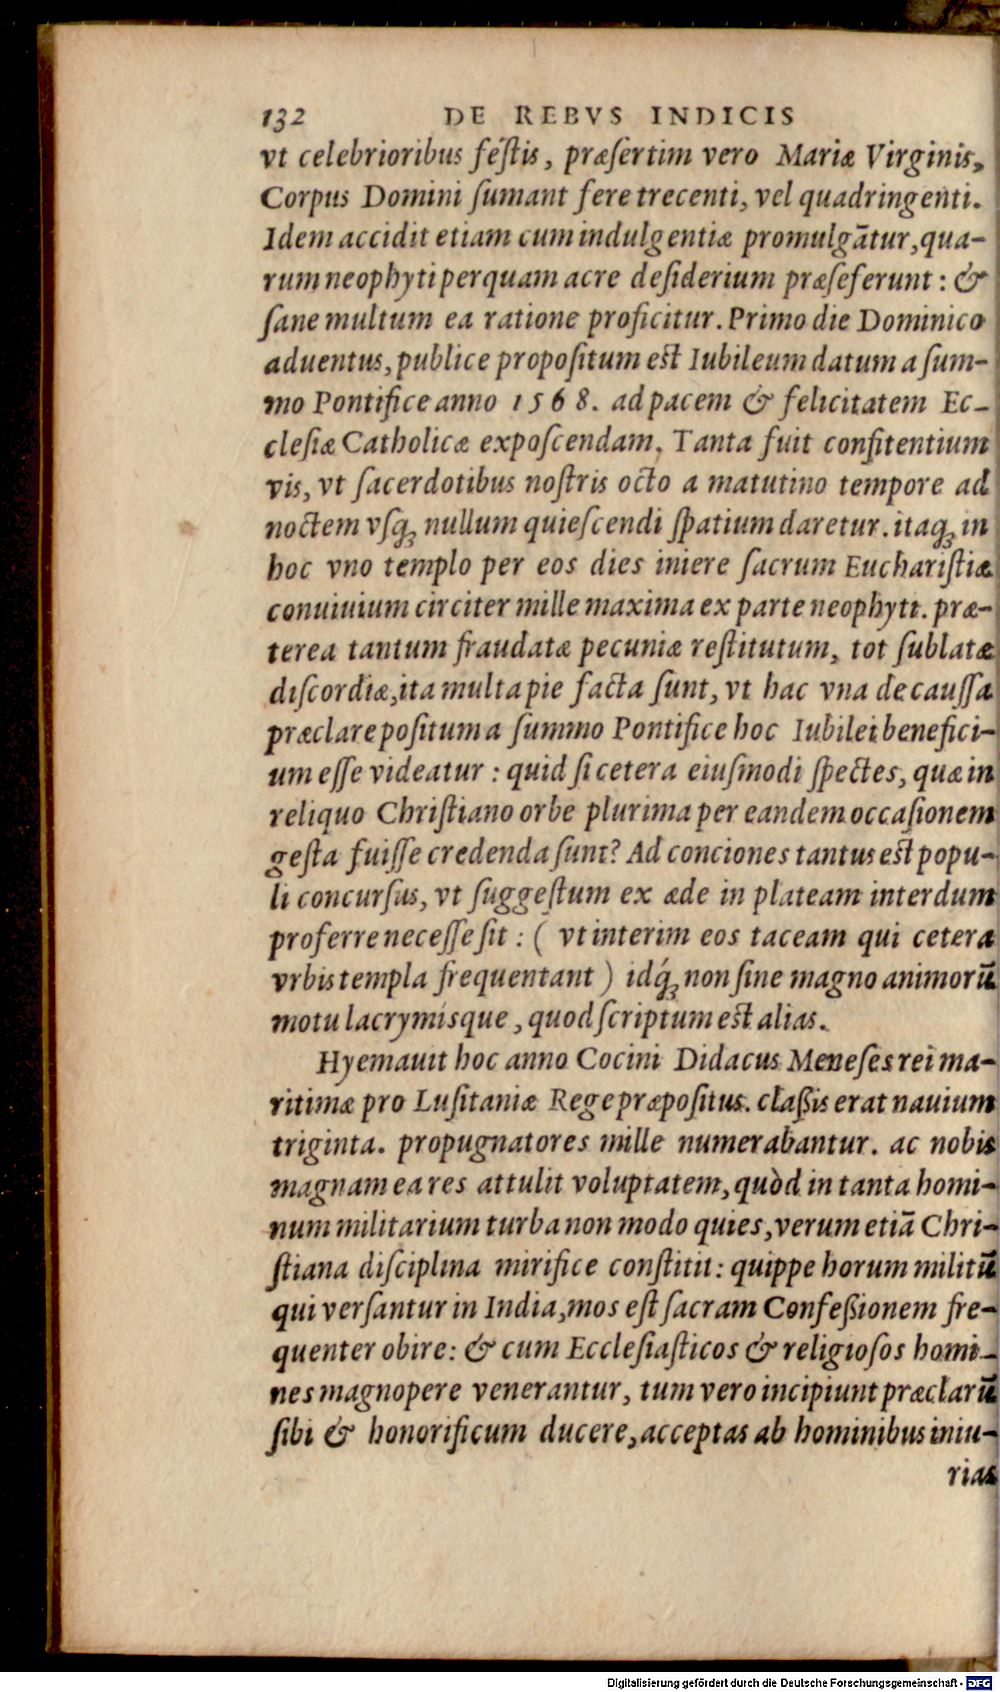 132 DE REBVS INDICIS
vt celebrioribus festis, præsertim vero Mariæ Virginis,
Corpus Domini sumant fere trecenti, vel quadringenti.
Idem accidit etiam cum indulgentiæ promulgātur, qua-
rum neophyti perquam acre desiderium præseferunt: &
sane multum ea ratione proficitur. Primo die Dominico
aduentus, publice propositum est Iubileum datum a sum-
mo Pontifice anno 1568. ad pacem & felicitatem Ec-
clesiæ Catholicæ exposcendam. Tanta fuit confitentium
vis, vt sacerdotibus nostris octo a matutino tempore ad
noctem vsq; nullum quiescendi spatium daretur. itaq; in
hoc vno templo per eos dies iniere sacrum Eucharistiæ
conuiuium circiter mille maxima ex parte neophyti. præ-
terea tantum fraudatæ pecuniæ restitutum, tot sublatæ
discordiæ, ita multa pie facta sunt, vt hac vna de caussa
præclare positum a summo Pontifice hoc Iubilei benefici-
um esse videatur: quid si cetera eiusmodi spectes, quæ in
reliquo Christiano orbe plurima per eandem occasionem
gesta fuisse credenda sunt? Ad conciones tantus est popu-
li concursus, vt suggestum ex æde in plateam interdum
proferre necesse sit: ( vt interim eos taceam qui cetera
vrbis templa frequentant ) idq́; non sine magno animorū
motu lacrymisque, quod scriptum est alias.
Hyemauit hoc anno Cocini Didacus Meneses rei ma-
ritimæ pro Lusitaniæ Rege præpositus. classis erat nauium
triginta. propugnatores mille numerabantur. ac nobis
magnam ea res attulit voluptatem, quòd in tanta homi-
num militarium turba non modo quies, verum etiā Chri-
stiana disciplina mirifice constitit: quippe horum militū
qui versantur in India, mos est sacram Confessionem fre-
quenter obire: & cum Ecclesiasticos & religiosos homi-
nes magnopere venerantur, tum vero incipiunt præclarū
sibi & honorificum ducere, acceptas ab hominibus iniu-
rias
Digitalisierung gefördert durch die Deutsche Forschungsgemeinschaft - DFG